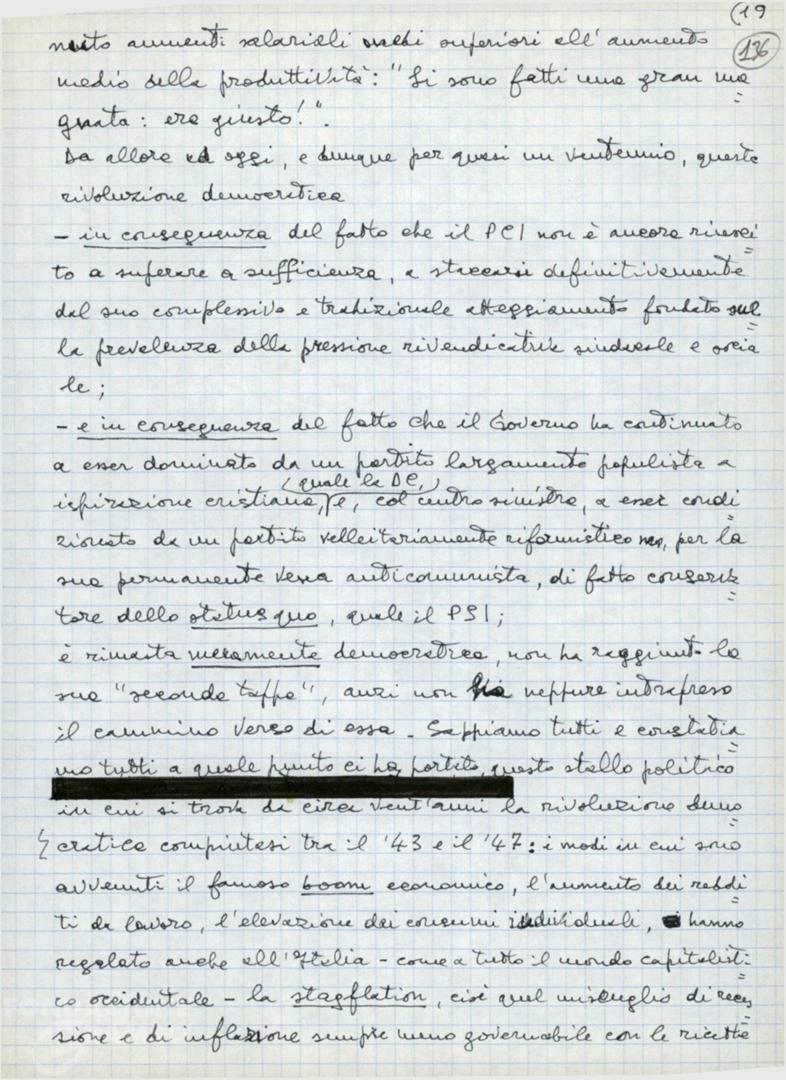 (19
136
nuto aumenti salariali medi superiori all'aumento
medio della produttività: "Si sono fatti una gran ma=
gnata: era giusto!".
Da allora ad oggi, e dunque per quasi un ventennio, questa
rivoluzione democratica
- in conseguenza del fatto che il PCI non è ancora riusci=
to a superare a sufficienza, a staccarsi definitivamente
dal suo complessivo e tradizionale atteggiamento fondato sul=
la prevalenza della pressione rivendicativa sindacale e socia
le;
- e in conseguenza del fatto che il Governo ha continuato
a esser dominato da un partito largamente populista a
(quale la DC,)
ispirazione cristiana, e, col centro sinistra, a esser condi=
zionato da un partito velleitariamente riformistico ma, per la
sua permanente vena anticomunista, di fatto conserva=
tore dello status quo, quale il PSI;
è rimasta meramente democratica, non ha raggiunto la
sua "seconda tappa", anzi non ha neppure intrapreso
il cammino verso di essa. Sappiamo tutti e constatia=
mo tutti a quale punto ci ha portato questo stallo politico
in cui si trova da circa vent'anni la rivoluzione demo=
cratica compiutasi tra il '43 e il '47: i modi in cui sono
avvenuti il famoso boom economico, l'aumento dei reddi=
ti da lavoro, l'elevazione dei consumi individuali, hanno
regalato anche all'Italia - come a tutto il mondo capitalisti=
co occidentale - la stagflation, cioè quel miscuglio di reces=
sione e di inflazione sempre meno governabile con le ricette